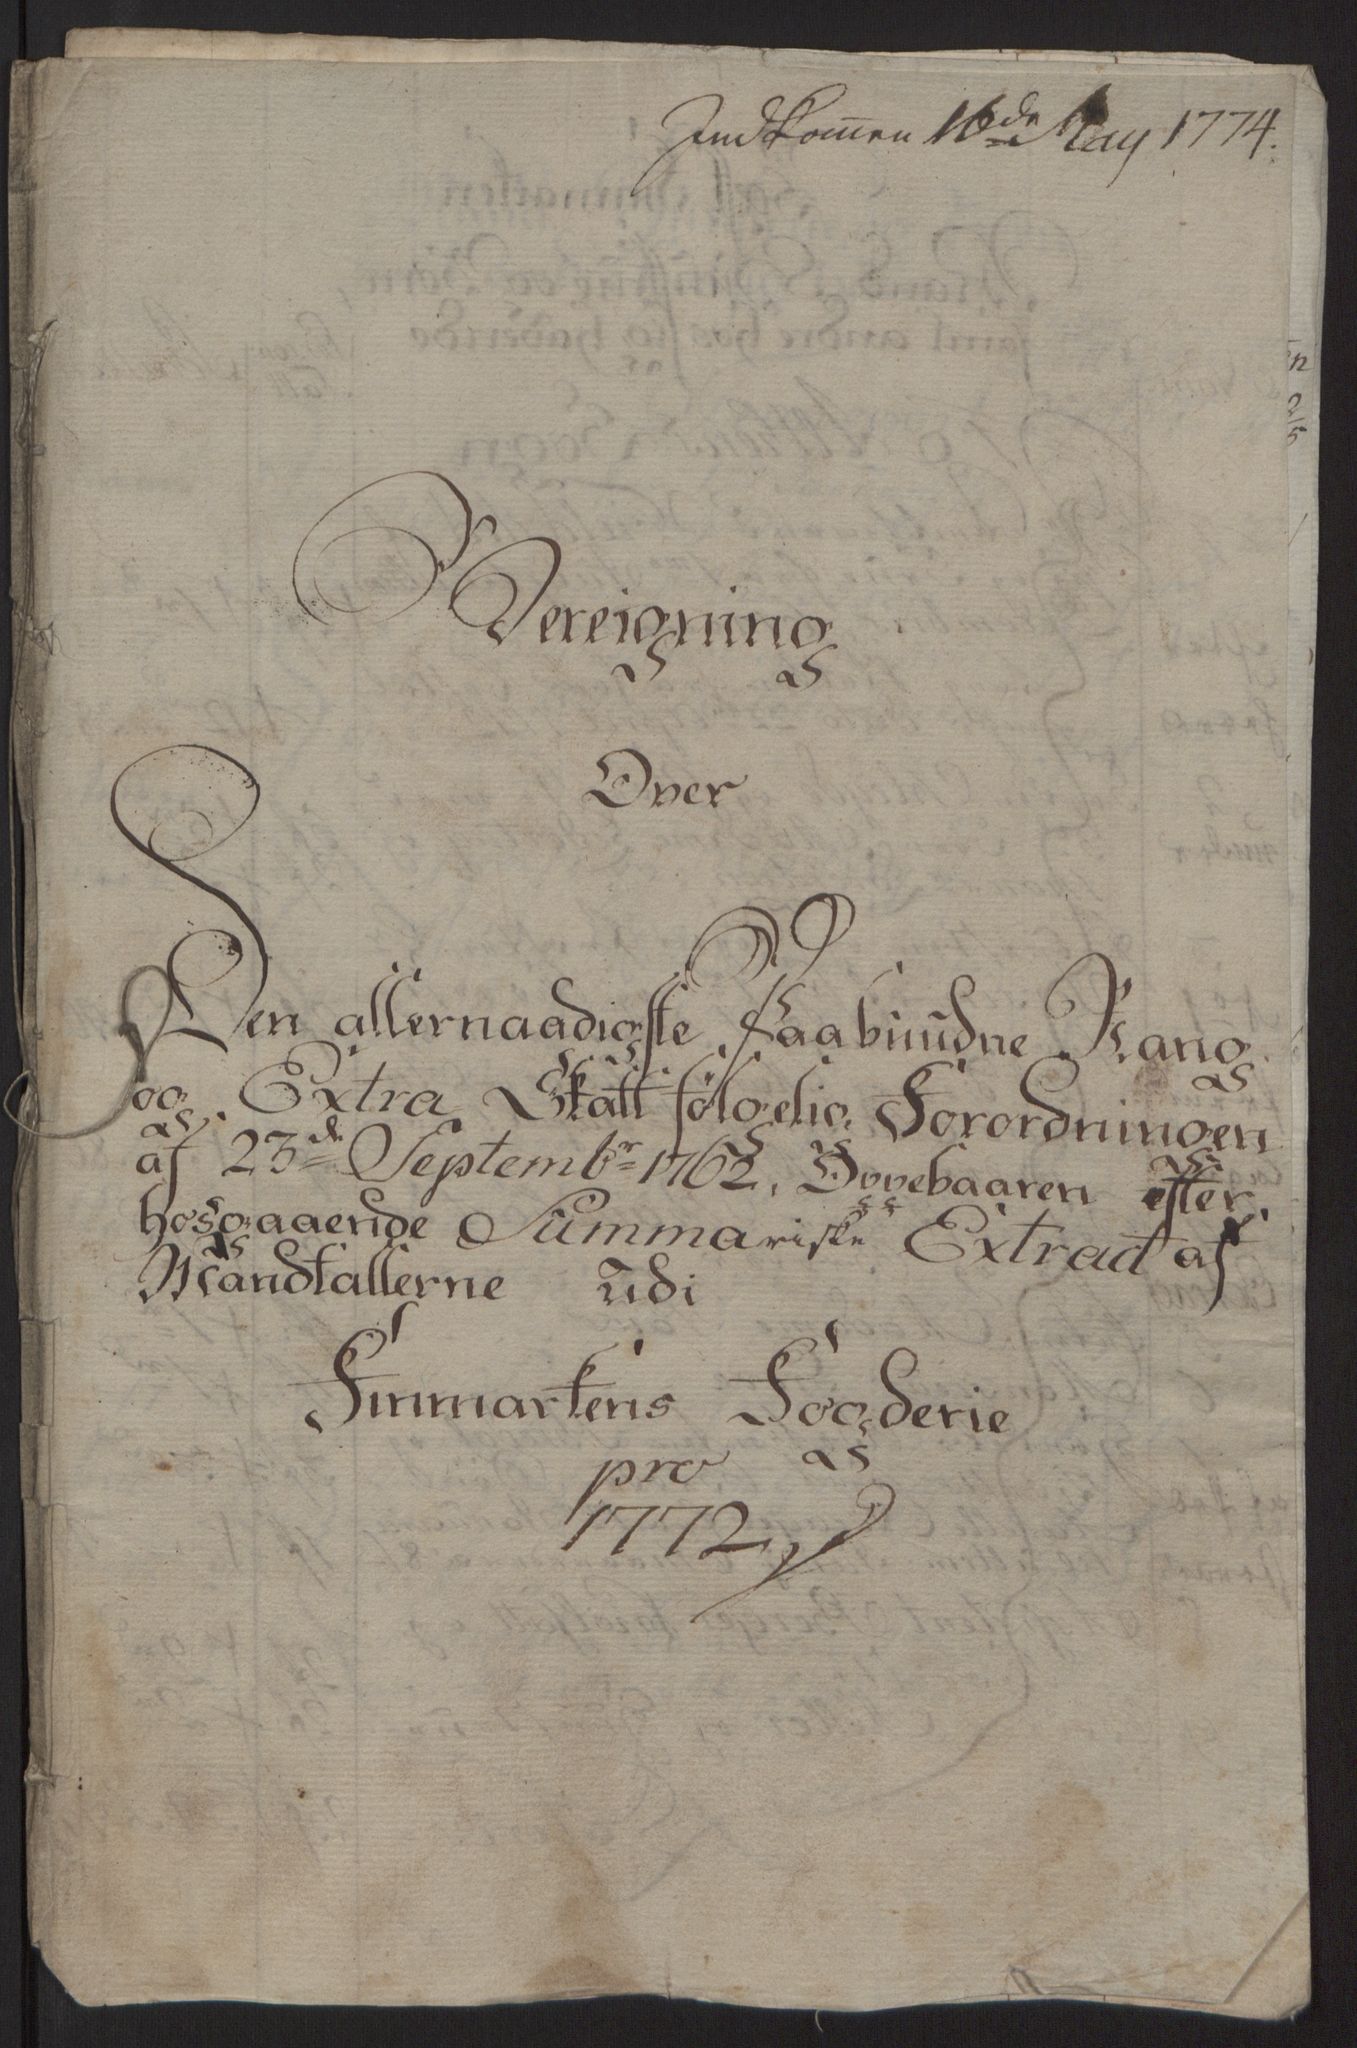 Indkommen 16de May 1774.
Bereigning
Over
Den allernaadigste Paabuudne Rang
og Extra Skatt følgelig Forordningen
af 23de Septembr 1762, Oppebaaren efter
hosgaaende Summariske Extract af
Mandtallerne udi
Finmarkens Fogderie
pro
1772